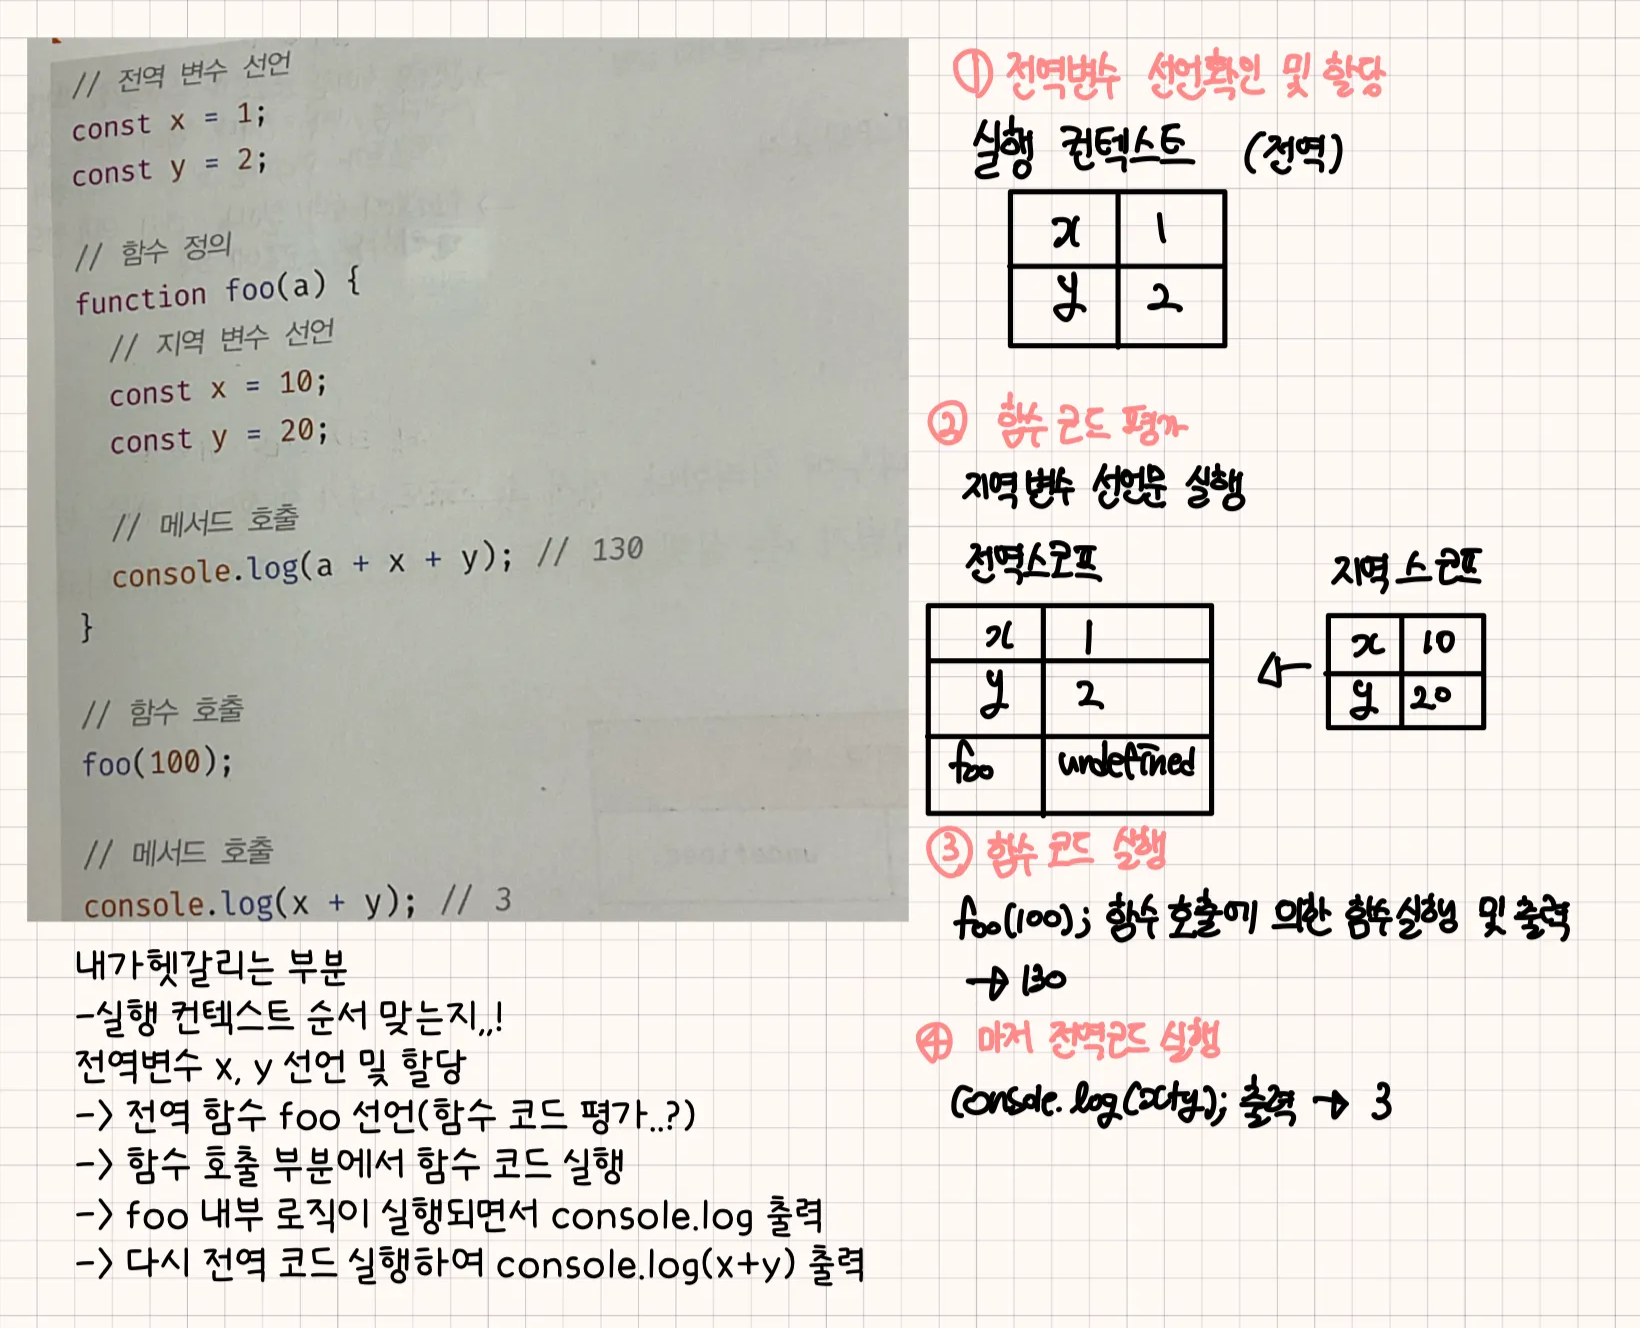 // 전역 변수 선언
const x = 1;
const y = 2;
// 함수 정의
function foo(a) {
// 지역 변수 선언
const x = 10;
const y = 20;
// 메서드 호출
console.log(a + x + y); // 130
}
// 함수 호출
foo(100);
// 메서드 호출
console.log(x + y); // 3
내가헷갈리는 부분
-실행 컨텍스트 순서 맞는지,,!
전역변수 x, y 선언 및 할당
-> 전역 함수 foo 선언(함수 코드 평가..?)
-> 함수 호출 부분에서 함수 코드 실행
-> foo 내부 로직이 실행되면서 console.log 출력
-> 다시 전역 코드 실행하여 console.log(x+y) 출력
① 전역변수 선언확인 및 할당
실행 컨텍스트 (전역)
x 1
y 2
② 함수 코드 평가
지역변수 선언문 실행
전역스코프 지역스코프
x 1
y 2
foo undefined
x 10
y 20
③ 함수 코드 실행
foo(100); 함수호출에 의한 함수실행 및 출력
→ 130
④ 마저 전역코드 실행
console.log(x+y); 출력 → 3